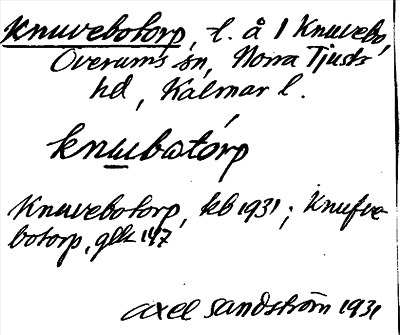 Knuvebotorp, l. å 1 Knuvebo,
Överums sn, Norra Tjusts
hd, Kalmar l.
knubatórp
Knuvebotorp, kb 1931; Knufve-
botorp, glk 147
Axel Sandström 1931